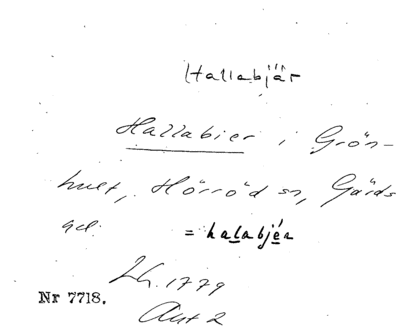 Hallabjär
Hallabier i Grön-
hult, Hörröd sn, Gärds
hd.
= halabjér
Lh. 1779
Akt 2
Nr 7718.